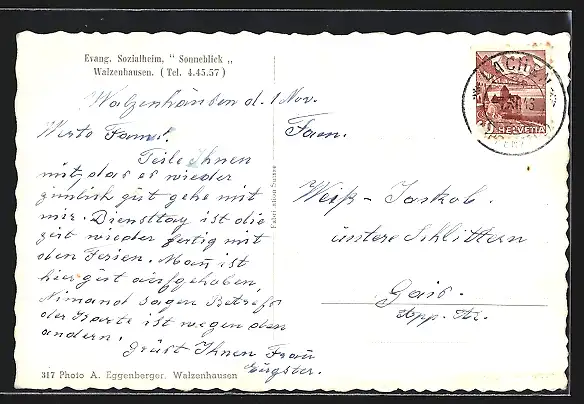 Evang. Sozialheim, “ Sonneblick „
Walzenhausen. ( Tel. 4.45.57 )
Walzenhausen d. 1 Nov.
Werte Fam.!
Teile Ihnen
mit, das es wieder
zimlich gut gehe mit
mir. Diensttag ist die
zeit wieder fertig mit
den Ferien. Man ist
hier gut aufgehoben,
Nimand sagen Betref
der Karte ist wegen den
andern.
Grüst Ihnen Frau
Eugster.
317 Photo A. Eggenberger, Walzenhausen
Fabrication Suisse
LACHEN
HELVETIA
Fam.
Weiß-Jaskob.
untere Schlittern
Gais.
App. Ar.